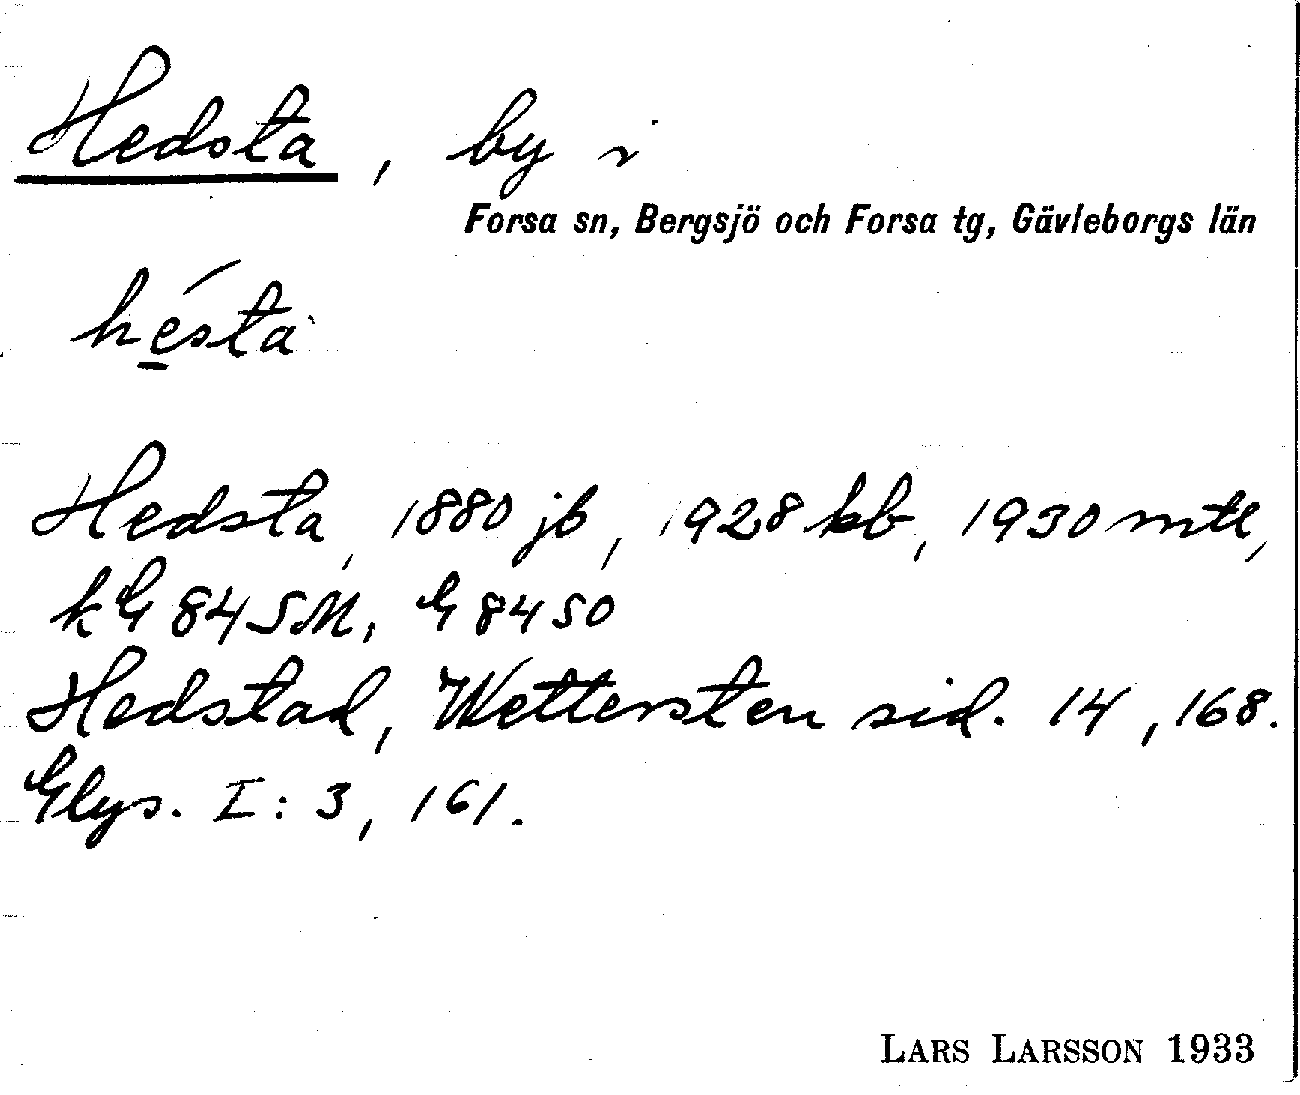 Hedsta, by i
Forsa sn, Bergsjö och Forsa tg, Gävleborgs län
hésta
Hedsta, 1880 jb, 1928 kb, 1930 mtl,
kG 84 SM, G 84 SO
Hedstad, Wettersten sid. 14, 168.
Glys. I: 3, 161.
LARS LARSSON 1933